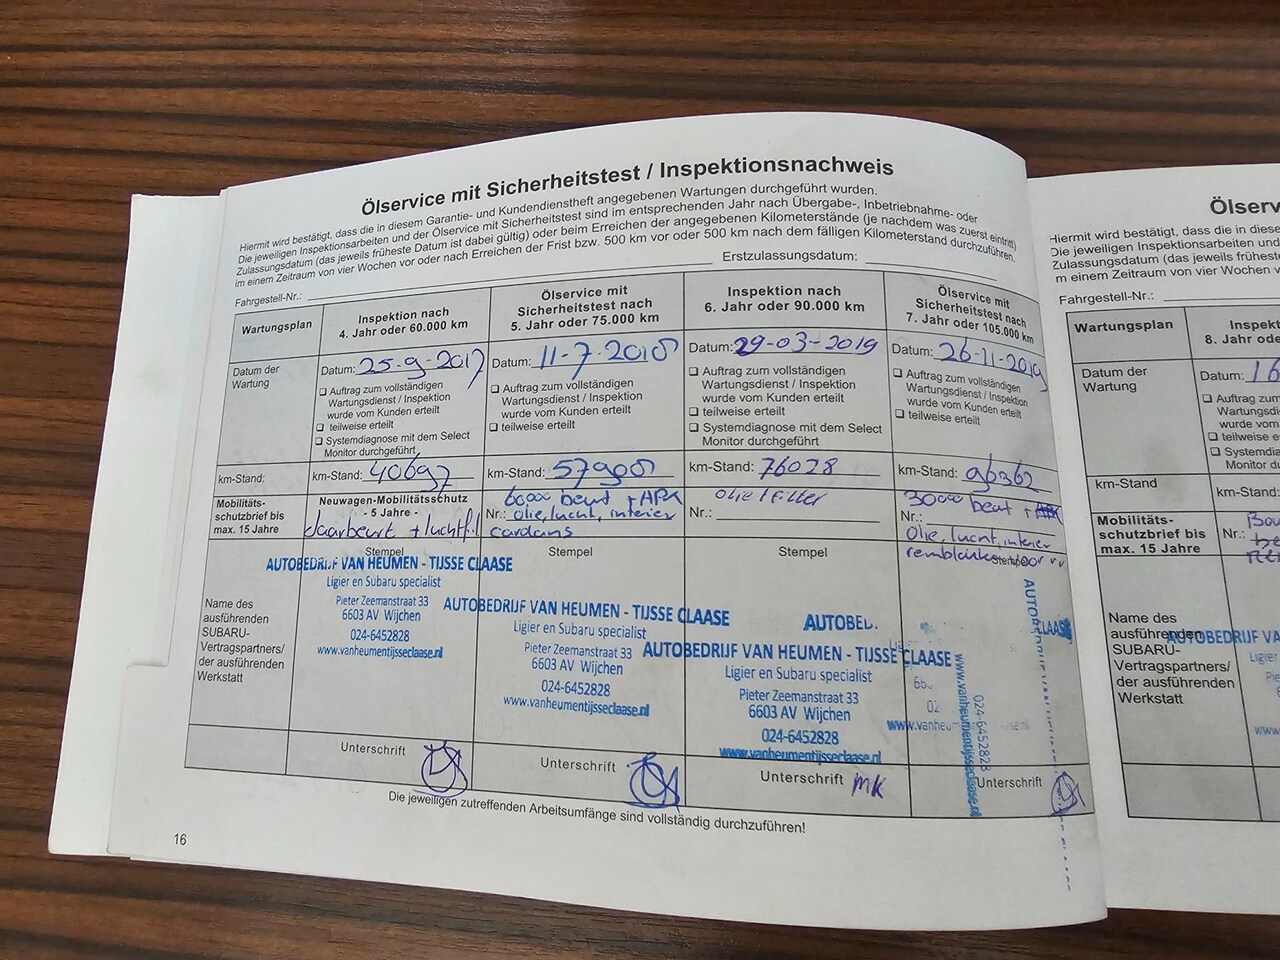 Ölservice mit Sicherheitstest / Inspektionsnachweis
Hiermit wird bestätigt, dass die in diesem Garantie- und Kundendienstheft angegebenen Wartungen durchgeführt wurden.
Die jeweiligen Inspektionsarbeiten und der Ölservice mit Sicherheitstest sind im entsprechenden Jahr nach Übergabe-, Inbetriebnahme- oder
Zulassungsdatum (das jeweils früheste Datum ist dabei gültig) oder beim Erreichen der angegebenen Kilometerstände (je nachdem was zuerst eintritt)
im einem Zeitraum von vier Wochen vor oder nach Erreichen der Frist bzw. 500 km vor oder 500 km nach dem fälligen Kilometerstand durchzuführen.
Fahrgestell-Nr.: Erstzulassungsdatum:
Wartungsplan
Inspektion nach
4. Jahr oder 60.000 km
Ölservice mit
Sicherheitstest nach
5. Jahr oder 75.000 km
Inspektion nach
6. Jahr oder 90.000 km
Ölservice mit
Sicherheitstest nach
7. Jahr oder 105.000 km
Datum der
Wartung
Datum: 25-9-2017
Auftrag zum vollständigen
Wartungsdienst / Inspektion
wurde vom Kunden erteilt
teilweise erteilt
Systemdiagnose mit dem Select
Monitor durchgeführt
Datum: 11-7-2018
Auftrag zum vollständigen
Wartungsdienst / Inspektion
wurde vom Kunden erteilt
teilweise erteilt
Datum: 29-03-2019
Auftrag zum vollständigen
Wartungsdienst / Inspektion
wurde vom Kunden erteilt
teilweise erteilt
Systemdiagnose mit dem Select
Monitor durchgeführt
Datum: 26-11-2019
Auftrag zum vollständigen
Wartungsdienst / Inspektion
wurde vom Kunden erteilt
teilweise erteilt
km-Stand:
km-Stand: 40697
km-Stand: 57908
km-Stand: 76028
km-Stand: 96362
Mobilitäts-
schutzbrief bis
max. 15 Jahre
Neuwagen-Mobilitätsschutz
- 5 Jahre -
Jaarbeurt + luchtfil
60000 beurt + APK
Nr.: olie, lucht, interier
cardans
olie / filter
Nr.:
30000 beurt +
Nr.:
olie, lucht, interier
remblokken voor
Name des
ausführenden
SUBARU-
Vertragspartners/
der ausführenden
Werkstatt
Stempel
AUTOBEDRIJF VAN HEUMEN - TIJSSE CLAASE
Ligier en Subaru specialist
Pieter Zeemanstraat 33
6603 AV Wijchen
024-6452828
www.vanheumentijsseclaase.nl
Stempel
AUTOBEDRIJF VAN HEUMEN - TIJSSE CLAASE
Ligier en Subaru specialist
Pieter Zeemanstraat 33
6603 AV Wijchen
024-6452828
www.vanheumentijsseclaase.nl
Stempel
AUTOBED.
AUTOBEDRIJF VAN HEUMEN - TIJSSE CLAASE
Ligier en Subaru specialist
Pieter Zeemanstraat 33
6603 AV Wijchen
024-6452828
www.vanheumentijsseclaase.nl
Stempel
CLAASE
www.vanheumentijsseclaase.nl
024-6452828
Unterschrift
Unterschrift
Unterschrift MK
Unterschrift
Die jeweiligen zutreffenden Arbeitsumfänge sind vollständig durchzuführen!
16
Ölserv
Hiermit wird bestätigt, dass die in diese
Die jeweiligen Inspektionsarbeiten und
Zulassungsdatum (das jeweils früheste
m einem Zeitraum von vier Wochen v
Fahrgestell-Nr.:
Wartungsplan
Inspekt
8. Jahr ode
Datum der
Wartung
Datum: 16
Auftrag zum
Wartungsd
wurde vom
teilweise e
Systemdia
Monitor d
km-Stand
km-Stand:
Mobilitäts-
schutzbrief bis
max. 15 Jahre
Nr.:
Name des
ausführenden
SUBARU-
Vertragspartners/
der ausführenden
Werkstatt
AUTOBEDRIJF VA
Ligier